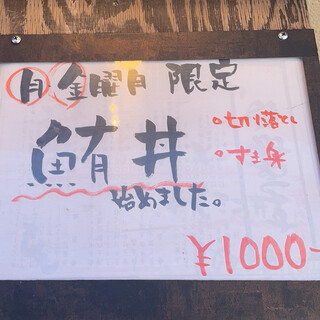 月 金曜日 限定
鮪丼
始めました。
○切り落とし
○すき身
¥1000-